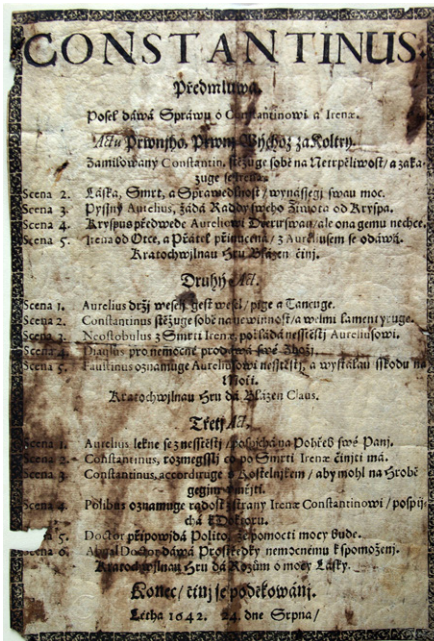 CONSTANTINUS.
Předmluwa.
Posel dáwá Spráwu o Constantinowi a Irenæ.
Actu Prwnjho, Prwnj Wýchoz za Koltry.
Zamilowaný Constantin, stěžuge sobě na Netrpěliwost / a zaka-
zuge se
Scena 2. Láska, Smrt, a Sprawedlnost / wynássegj swau moc.
Scena 3. Pyssný Aurelius, žádá Raddy swého Žiwota od Kryspa.
Scena 4. Kryspus předwede Aureliowi Dceru swau / ale ona gemu nechce.
Scena 5. Irena od Otce, a Přátel přinucena / z Aureliusem se odáwá.
Kratochwjlnau Hru Blázen činj.
Druhý Act.
Scena 1. Aurelius držj weselj gest wesel / pige a Tancuge.
Scena 2. Constantinus stěžuge sobě na newinnost / a welmi lamentyruge.
Scena 3. Neostobulus z Smrti Irenæ, pokládá nesstěstj Aureliusowi.
Scena 4. pro nemocné prodáwá swé Zbožj.
Scena 5. Faustinus oznamuge Aureliowi nesstěstj, a wystálau sskodu na
Moři.
Kratochwjlnau Hru dá Blázen Claus.
Třetj Act.
Scena 1. Aurelius lekne se z nesstěstj / pospjchá na Pohřeb swé Panj.
Scena 2. Constantinus, rozmegsslj co po Smrti Irenæ činiti má.
Scena 3. Constantinus, accordiruge s Kostelnjkem / aby mohl na Hrobě
gegjm
Scena 4. Polibus oznamuge radost z strany Irenæ Constantinowi / pospj-
chá k Doktoru.
5. Doctor připowjdá Polito, že spomoci mocy bude.
Scena 6. Doctor dáwá Prostředky nemocnému k spomoženj.
Kratochwjlnau Hru dá Rozům o mocy Lásky.
Konec / činj se poděkowánj.
Létha 1642. 24. dne Srpna /